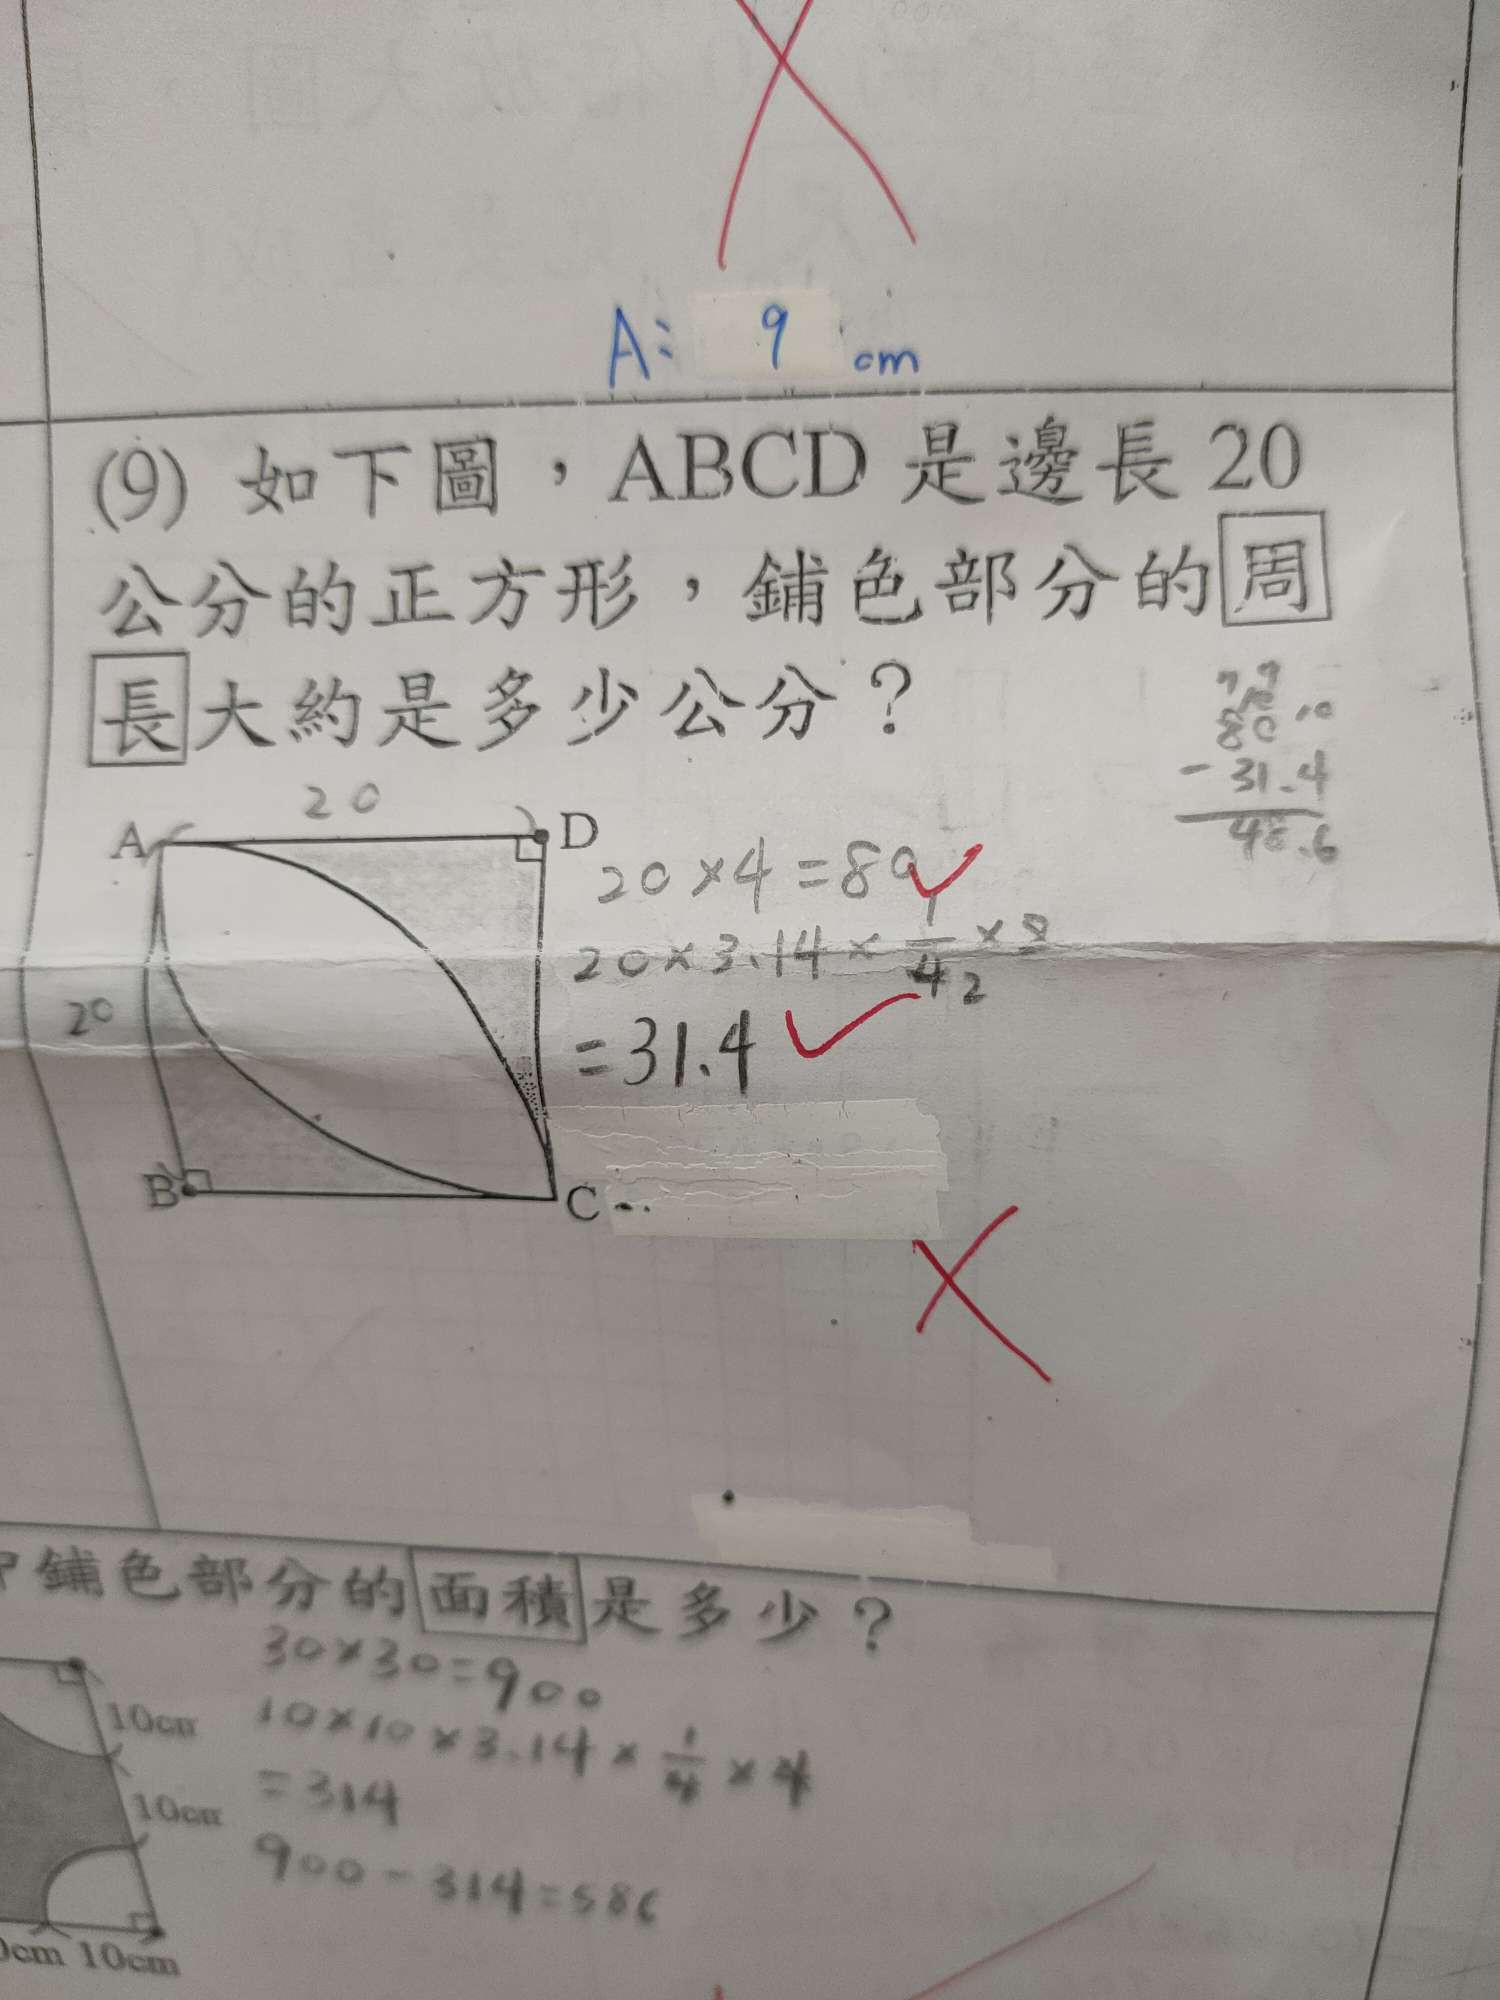 A: 9 cm
(9) 如下圖，ABCD 是邊長 20
公分的正方形，鋪色部分的周
長大約是多少公分？
79
10
80.0
- 31.4
48.6
20
A
D
20×4=80
20×3.14×1/4×2
20
=31.4
B
C
鋪色部分的面積是多少？
30×30=900
10cm
10×10×3.14×1/4×4
=314
10cm
900-314=586
10cm